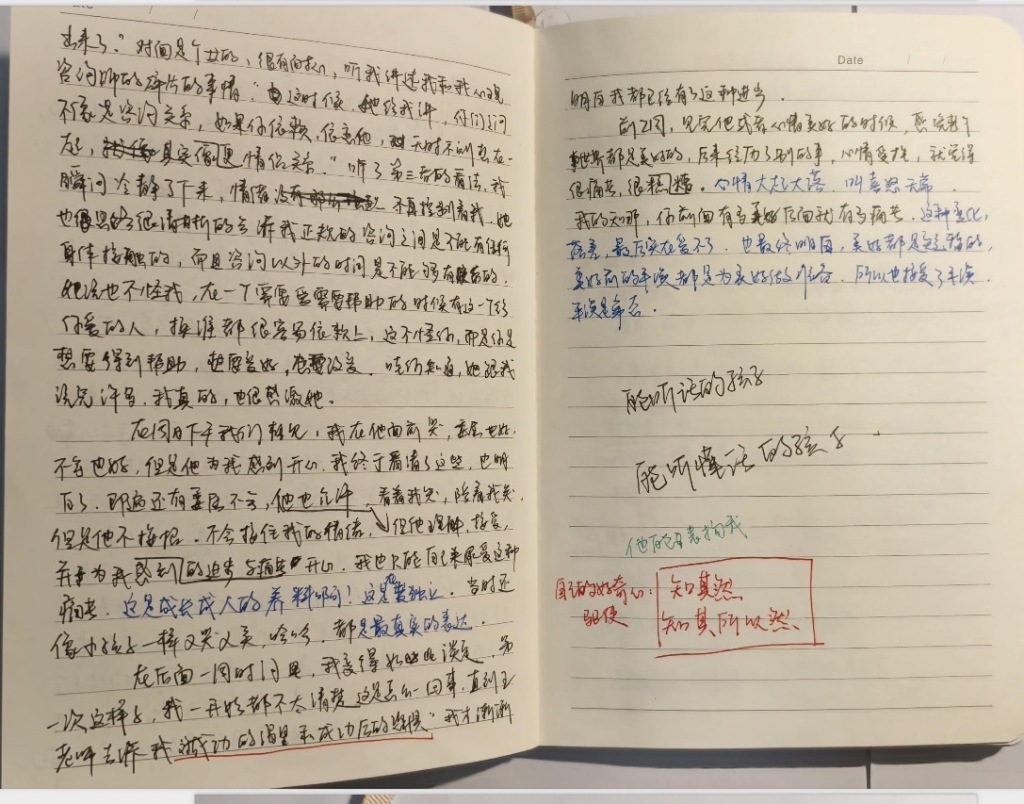 出来了。”时间是个
咨询师的碎片的事情“这时候她给我讲，你们之间
不该是咨询关系，如果你依赖，依恋他，无时不刻想在一
起，其实便是情侣关系”听了第三者的看法，我
瞬间冷静了下来，情绪不再控制着我。她
也很清晰的告诉我正规的咨询之间是不能有任何
身体接触的，而且咨询以外的时间是不能够有
她说也不怪我，在一个需要帮助的时候有这一个给
你爱的人，换谁都很容易依赖上，这不怪你，而是你是
想要得到帮助，想要变好，想要改变。她跟我
说完许多，我真的，也很感激她。
在周日下午我们
不舍也好，但是他为我感到开心，我终于看清了这些，也明
白了。即便还有委屈不舍，他也允许，看着我哭，陪着我哭
但是他不接招。不会接住我的情绪，但他理解，接受，
并为我感到的进步与痛苦开心。我也只能自己来承受这种
痛苦。这是成长成人的养料啊！这是独立。当时还
像小孩子一样又哭又笑，哈哈，都是最真实的表达。
在后面一周时间里，我变得如此淡定。第
一次这样子，我一开始都不太清楚这是怎么一回事。直到王
老师告诉我“成功的渴望和成功后的恐惧”我才渐渐
Date
明白我都已经有了这种进步。
前几周，见完他或者心情美好的时候，感觉整个
世界都是美好的，后来经历了别的事，心情变差，就觉得
很痛苦，很糟糕。心情大起大落，叫喜怒无常。
我的天哪，你前面有多美好后面就有多痛苦。这种变化，
落差，最后实在受不了。也最终明白，美好都是短暂的，
美好前的平淡都是为美好做准备。所以也接受了平淡
平淡是常态。
能听话的孩子
能听懂话的孩子
他的
自己的好奇心：
驱使
知其然
知其所以然